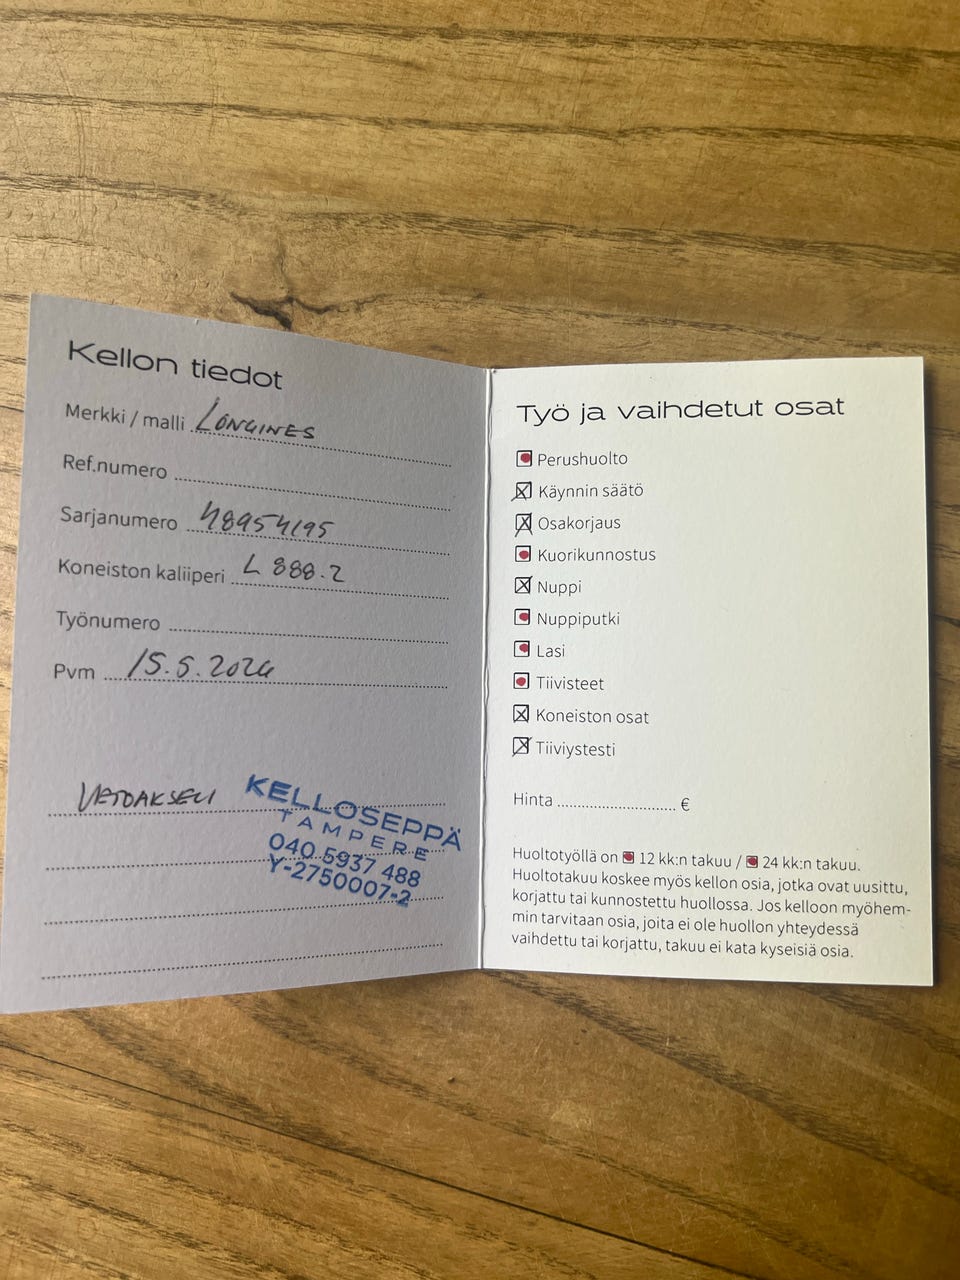 Kellon tiedot
Merkki / malli LONGINES
Ref.numero
Sarjanumero 48954195
Koneiston kaliiperi L 888.2
Työnumero
Pvm 15.5.2024
VETOAKSELI
KELLOSEPPÄ
TAMPERE
040 5937 488
Y-2750007-2
Työ ja vaihdetut osat
Perushuolto
Käynnin säätö
Osakorjaus
Kuorikunnostus
Nuppi
Nuppiputki
Lasi
Tiivisteet
Koneiston osat
Tiiviystesti
Hinta €
Huoltotyöllä on 12 kk:n takuu / 24 kk:n takuu.
Huoltotakuu koskee myös kellon osia, jotka ovat uusittu,
korjattu tai kunnostettu huollossa. Jos kelloon myöhem-
min tarvitaan osia, joita ei ole huollon yhteydessä
vaihdettu tai korjattu, takuu ei kata kyseisiä osia.